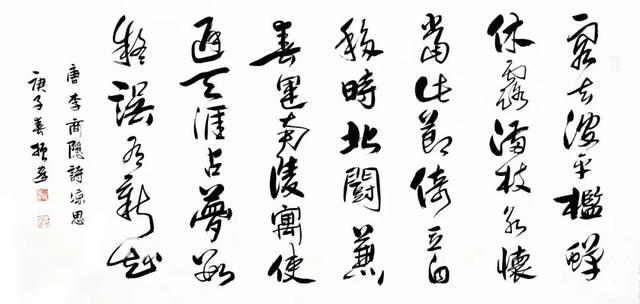 客去波平檻蟬
休露滿枝永懷
當此節倚立自
移時北鬪兼
春遠南陵寓使
遲天涯占夢數
疑誤有新知
唐李商隱詩涼思
庚子春